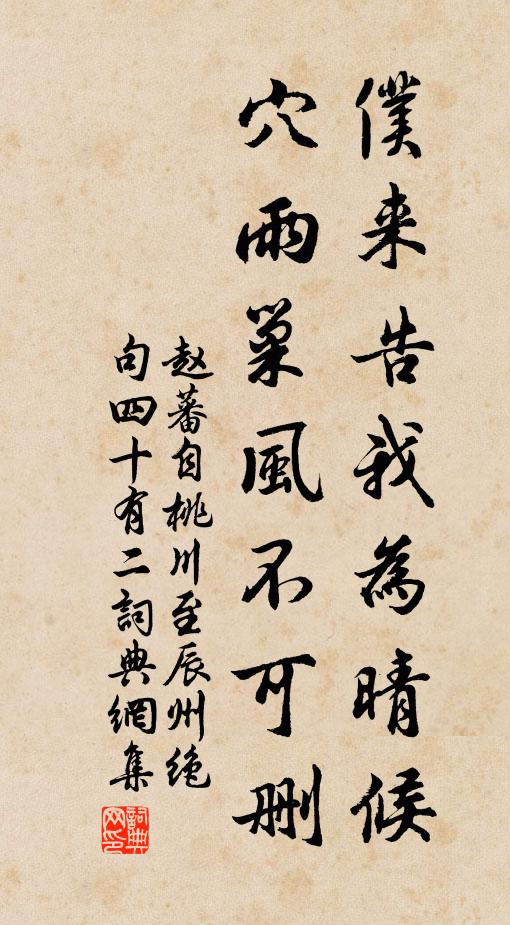 僕来告我為晴候
穴雨巢風不可删
赵蕃自桃川至辰州绝
句四十有二詞典網集
詞典网印